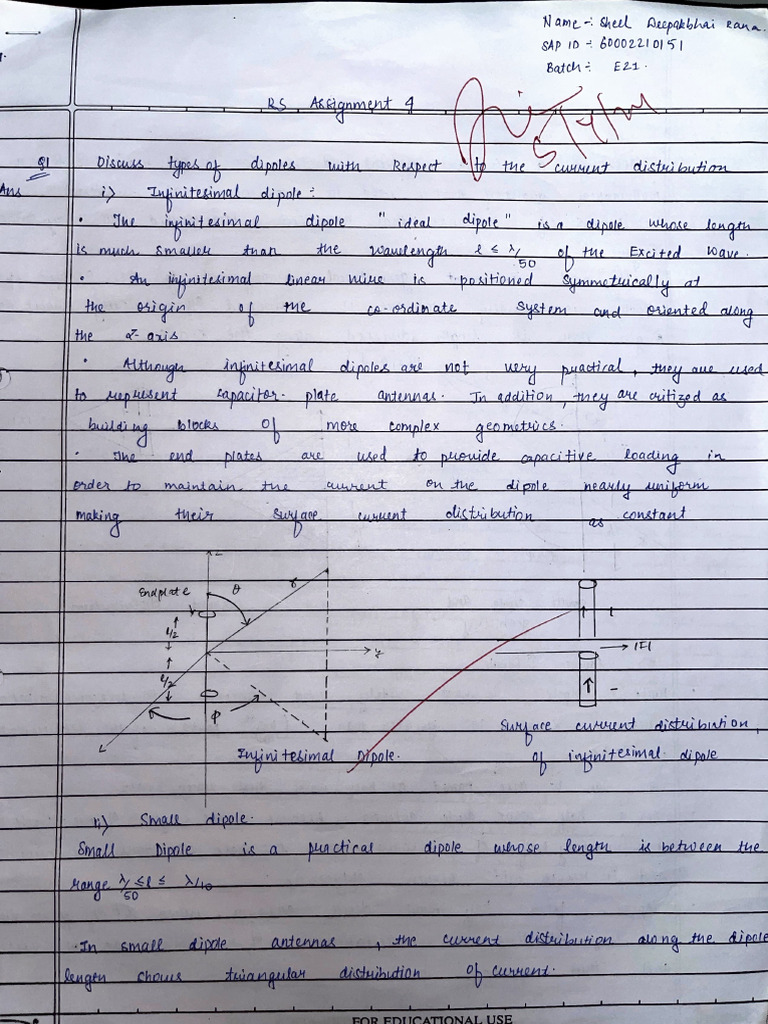 Name -: Sheel Deepakbhai Rana.
SAP ID -: 60002210151
Batch -: E21.
RS Assignment 4
Q1 Discuss types of dipoles with Respect to the current distribution
Ans i) Infinitesimal dipole :
• The infinitesimal dipole "ideal dipole" is a dipole whose length
is much smaller than the wavelength l ≤ λ/50 of the Excited wave.
• An infinitesimal linear wire is positioned symmetrically at
the origin of the co-ordimate system and oriented along
the Z-axis
• Although infinitesimal dipoles are not very practical, they are used
to represent capacitor-plate antennas. In addition, they are critized as
building blocks of more complex geometrics.
• The end plates are used to provide capacitive loading in
order to maintain the current on the dipole nearly uniform
making their surface current distribution as constant
z
Endplate θ r
l/2
l/2
y
φ
|I|
Surface current distribution,
Infinitesimal Dipole. of infinitesimal dipole
ii) Small dipole.
Small Dipole is a practical dipole whose length is between the
range λ/50 ≤ l ≤ λ/10
• In small dipole antennas, the current distribution along the dipole
length chows triangular distribution of current.
FOR EDUCATIONAL USE